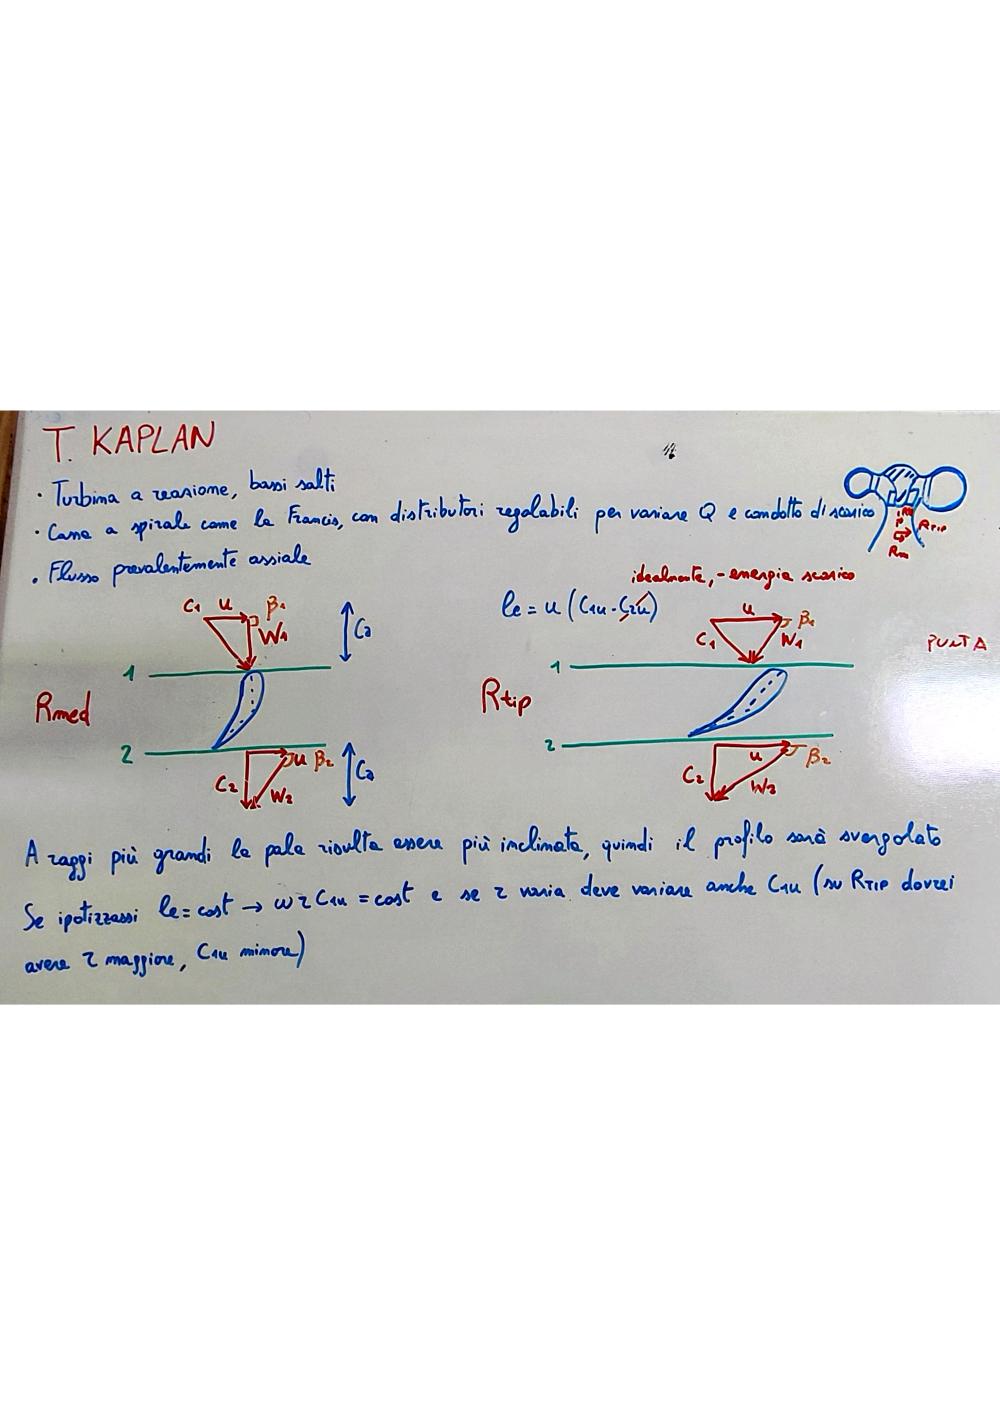 T. KAPLAN
· Turbina a reazione, bassi salti
· Cassa a spirale come la Francis, con distributori regolabili per variare Q e condotto di scarico
· Flusso prevalentemente assiale
RTIP
Rm
idealmente, - energia scarico
le = u (C1u - C2u)
C1 u β1
W1
Ca
1
Rmed
2
C2
u β2
W2
Ca
u
β1
C1
W1
PUNTA
1
Rtip
2
u
β2
C2
W2
A raggi più grandi la pala risulta essere più inclinata, quindi il profilo sarà svergolato
Se ipotizzassi le = cost → ω r C1u = cost e se r varia deve variare anche C1u (su RTIP dovrei
avere r maggiore, C1u minore)